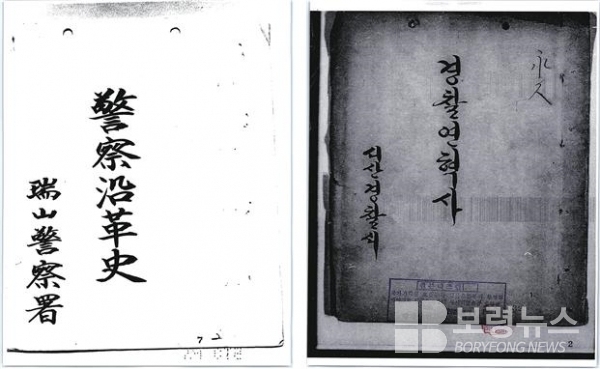 警察沿革史
瑞山警察署
永久
경찰연혁사
서산경찰서
보령뉴스
BORYEONG NEWS
2